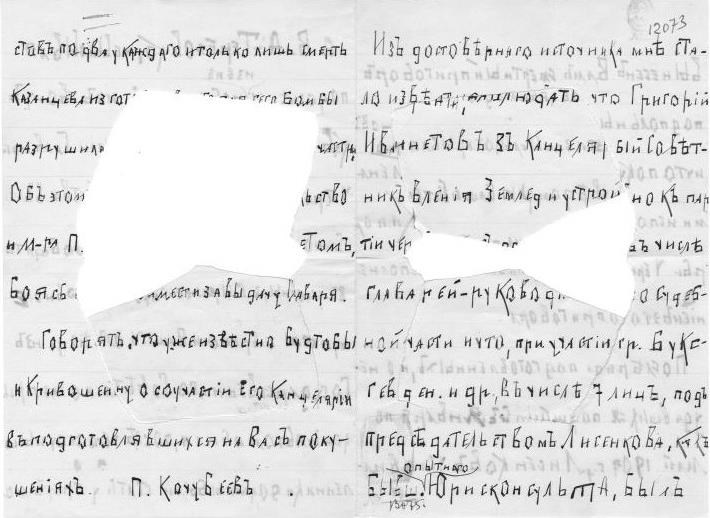 ставъ по два у каждаго и только лишь смерть
Казанцева изгот сего бомбы
разрушила
Объ этом ство
и м-ри П. етомъ,
боясь мести за выдачу главаря.
Говорятъ, что уже извѣстно будтобы
и Кривошеину о соучастіи его Канцеляріи
въ подготовлявшихся на Васъ поку-
шеніяхъ. П. Кочубеевъ.
12073
Изъ достовѣрнаго источника мнѣ ста-
ло извѣстн, что Григорій
Иваннетовъ Зъ Канцеля рый Совѣт-
никъ вленія Землед и устрой но къ пар
тіи чер въ числѣ
главарей-руковод о судеб-
ной части и что, при участіи гр. Букс-
гевден. и др, въ числѣ 7 лицъ, подъ
предсѣдательствомъ Лисенкова, какъ
опытнаго
бывш. Юрисконсульта, былъ